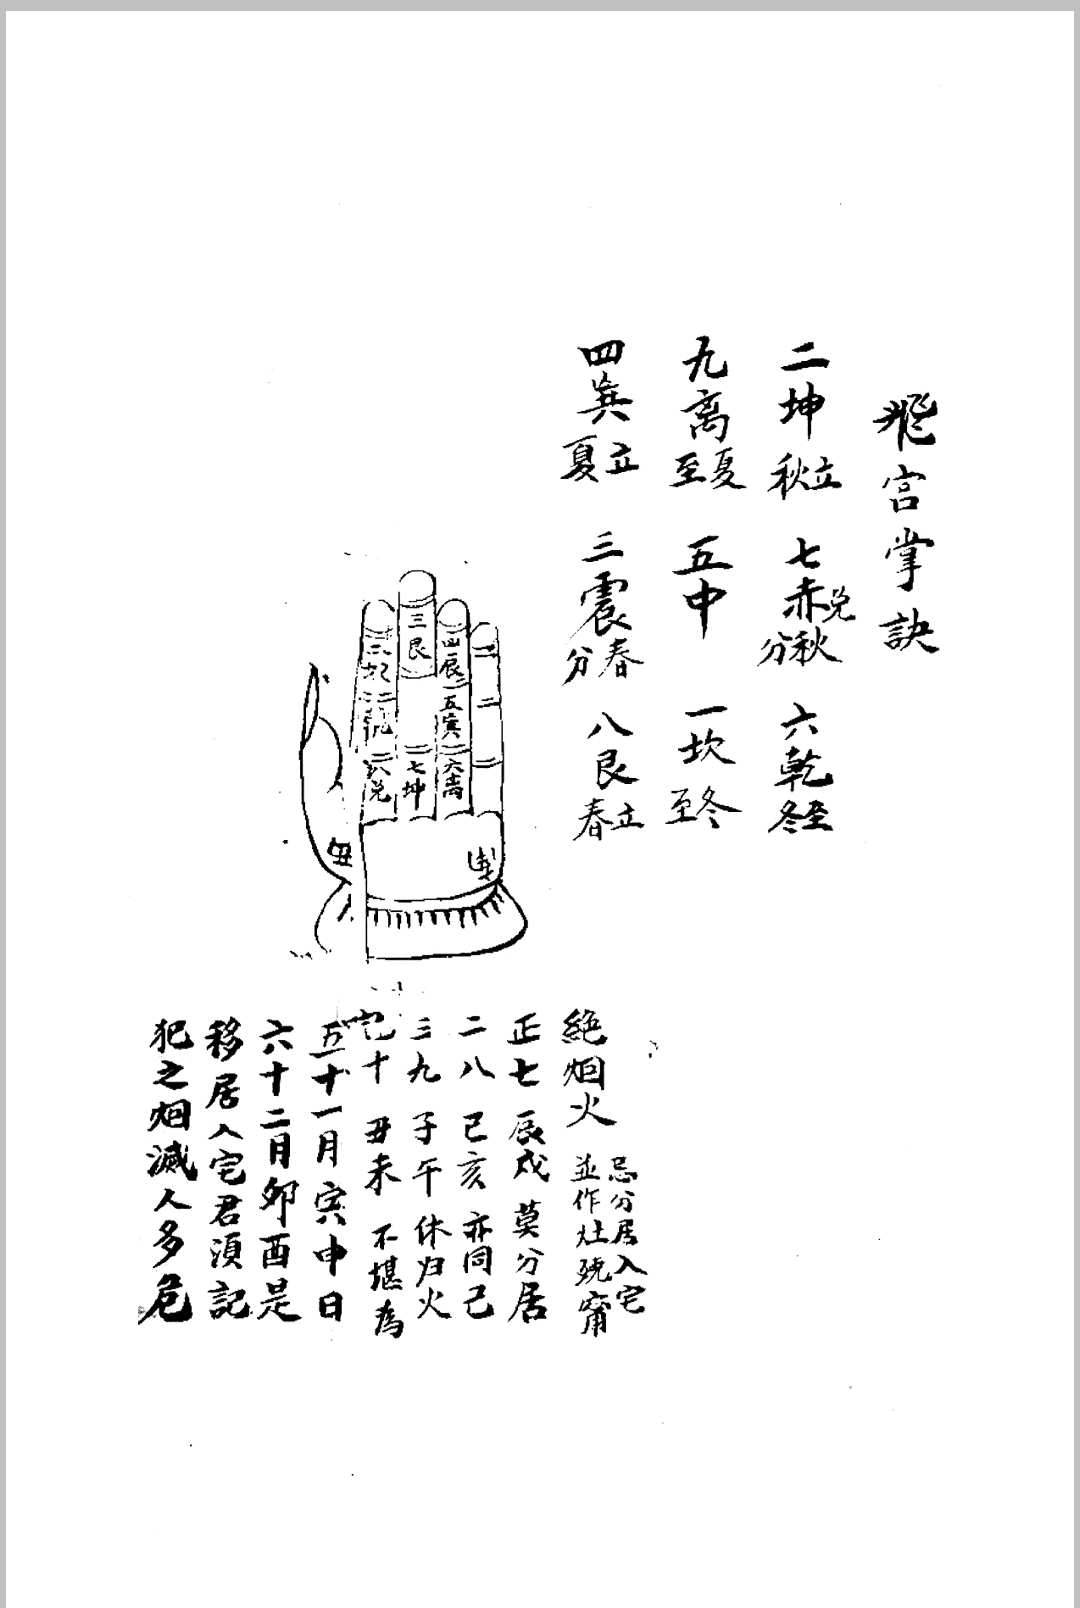 飛宮掌訣
二坤立秋 七赤兌秋分 六乾冬至
九离夏至 五中 一坎冬至
四巽立夏 三震春分 八艮立春
三艮
四辰
五寅
六离
七坤
八兌
一
二
三
絶烟火 忌分居入宅
並作灶
正七辰戌莫分居
二八己亥亦同己
三九子午休归火
十丑未不堪為
五十一月寅申日
六十二月卯酉是
移居入宅君須記
犯之烟滅人多危